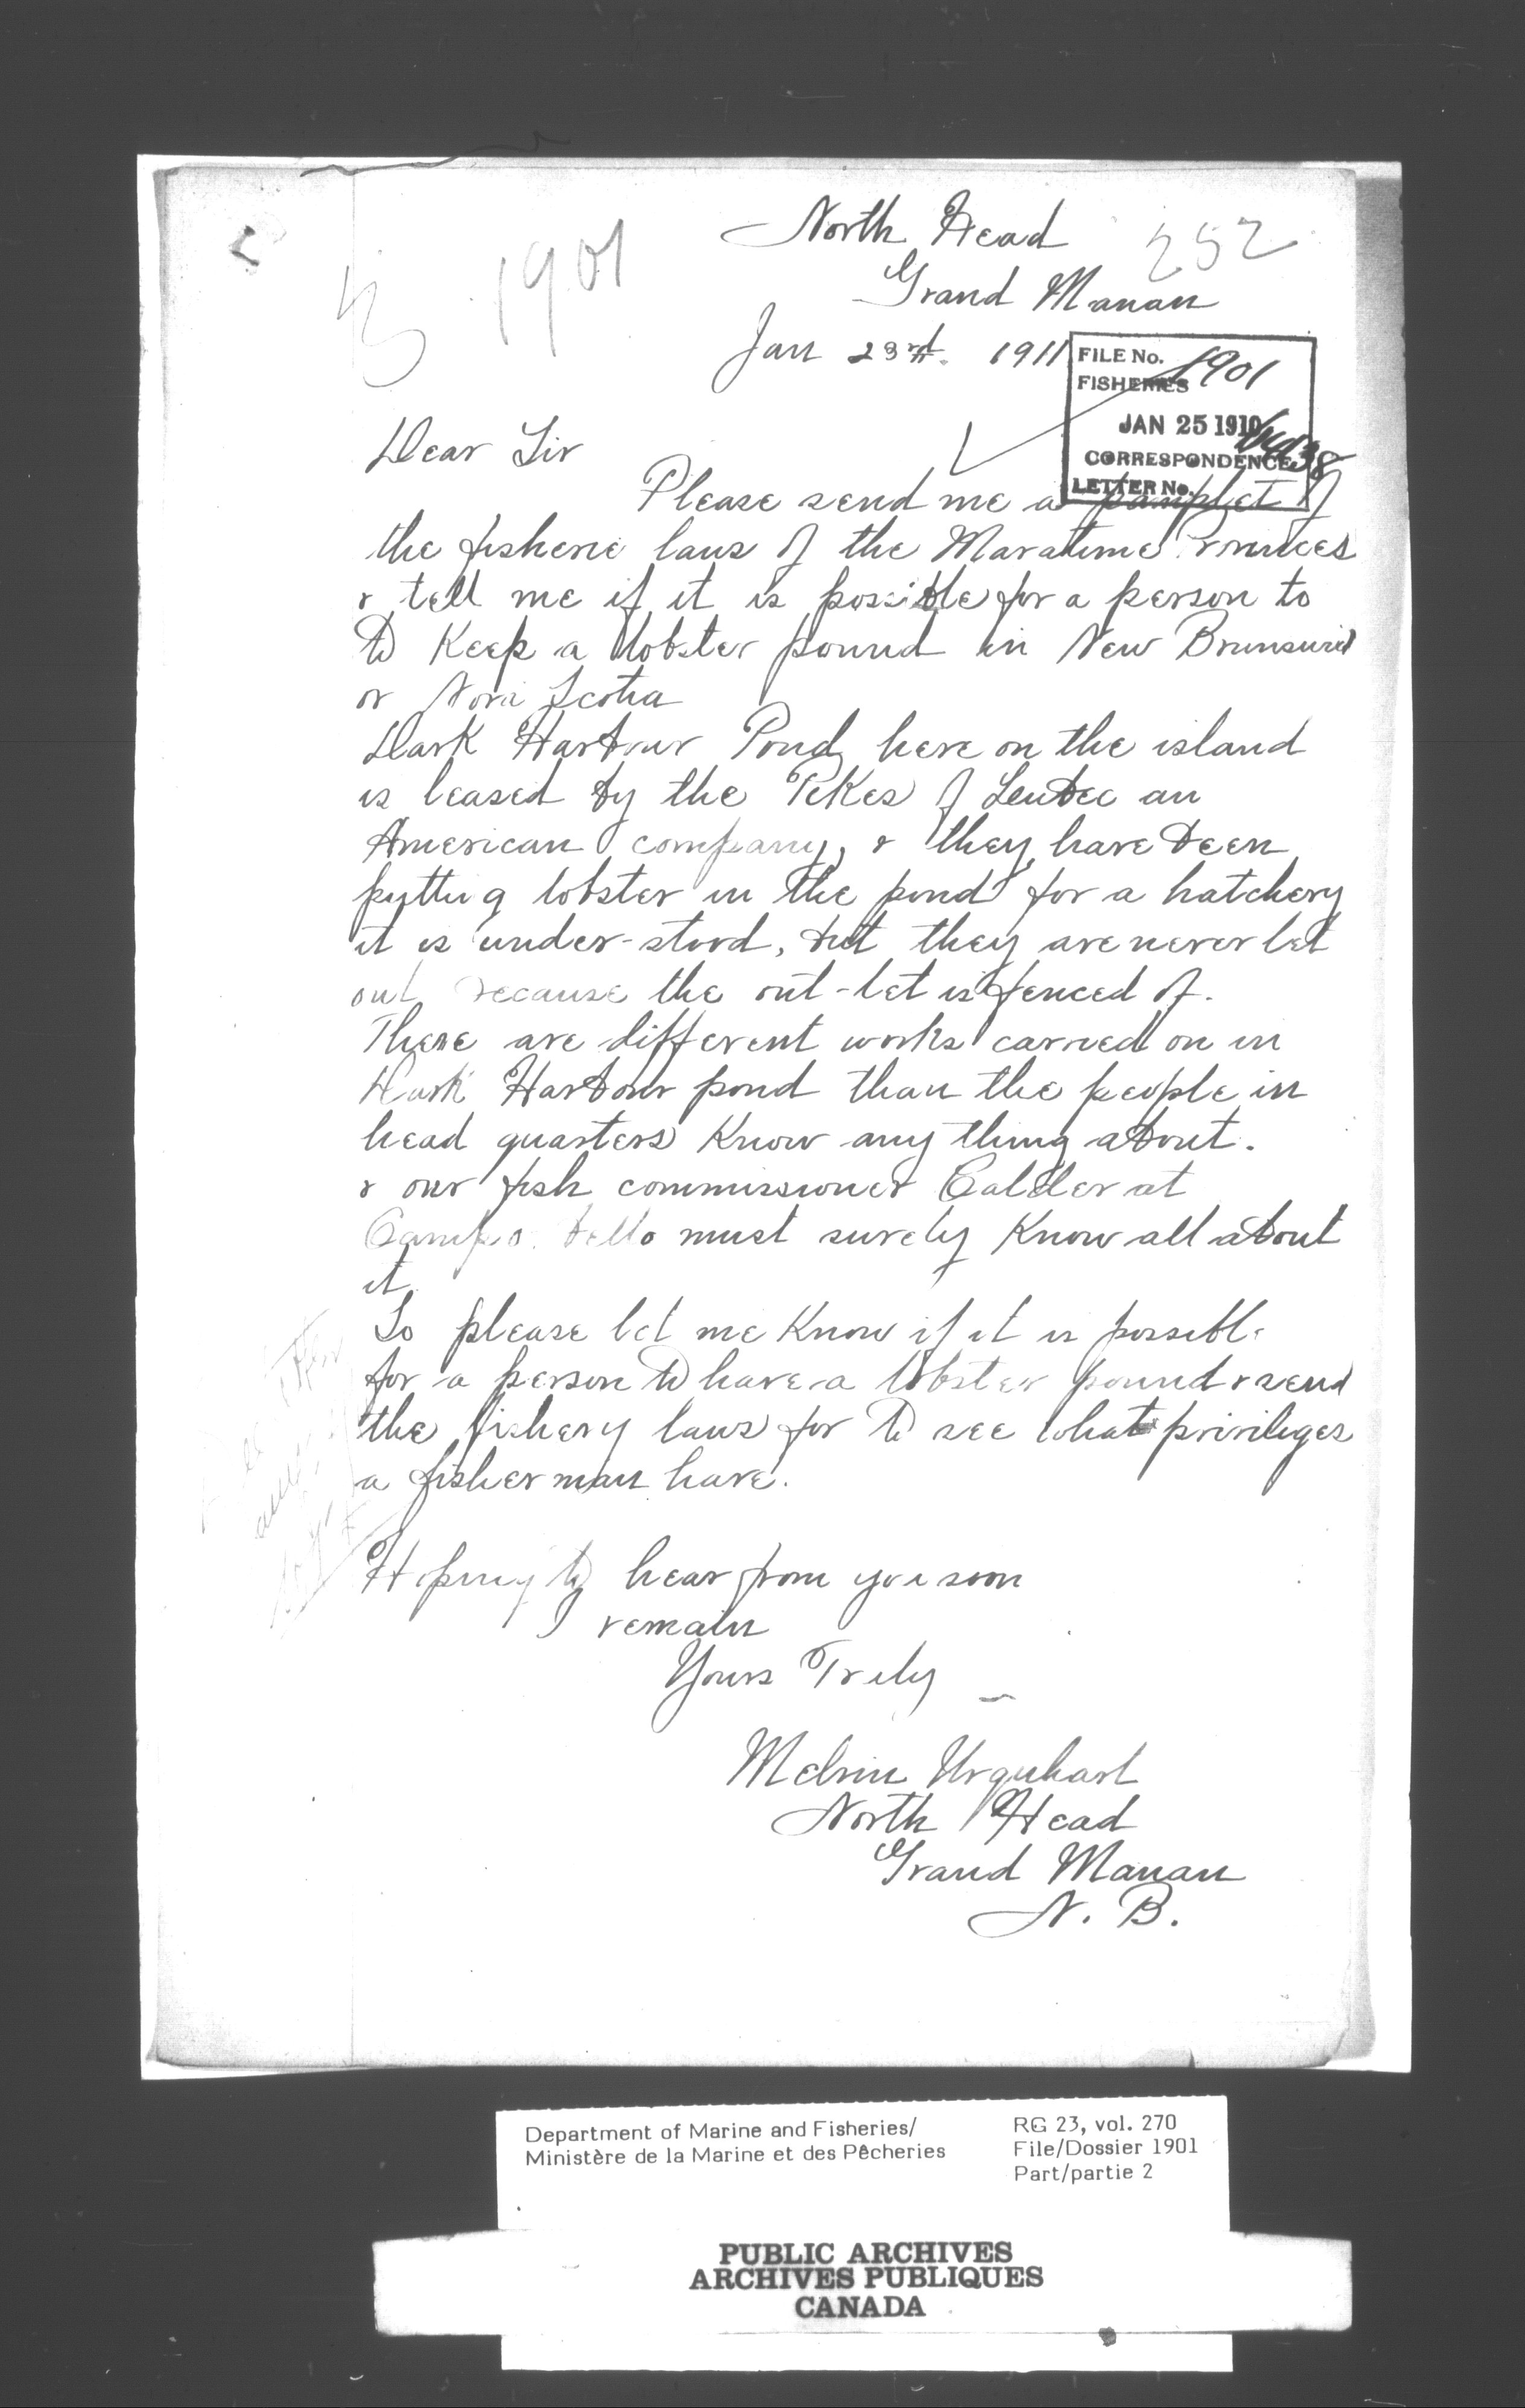 North Head
252
1901
Grand Manan
Jan 23rd. 1911
FILE No. 1901
FISHERIES
JAN 25 1910
CORRESPONDENCE
LETTER No.
Dear Sir
Please send me a pamplet of
the fisherie laws of the Maratime Provinces
& tell me if it is possible for a person to
to keep a lobster pound in New Brunswick
or Nova Scotia
Dark Harbour Pond here on the island
is leased by the Pikes of Leubec an
American company, & they have been
putting lobster in the pond for a hatchery
it is under-stood, but they are never let
out because the out-let is fenced of.
There are different works carried on in
Dark Harbour pond than the people in
head quarters know any thing about.
& our fish commissioner Calder at
Campo bello must surely know all about
it.
So please let me know if it is possible
for a person to have a lobster pound & send
the fishery laws for to see what privileges
a fisher man have.
Hoping to hear from you soon
I remain
Yours Truly
Melvin Urquhart
North Head
Grand Manan
N. B.
Department of Marine and Fisheries/
Ministère de la Marine et des Pêcheries
RG 23, vol. 270
File/Dossier 1901
Part/partie 2
PUBLIC ARCHIVES
ARCHIVES PUBLIQUES
CANADA